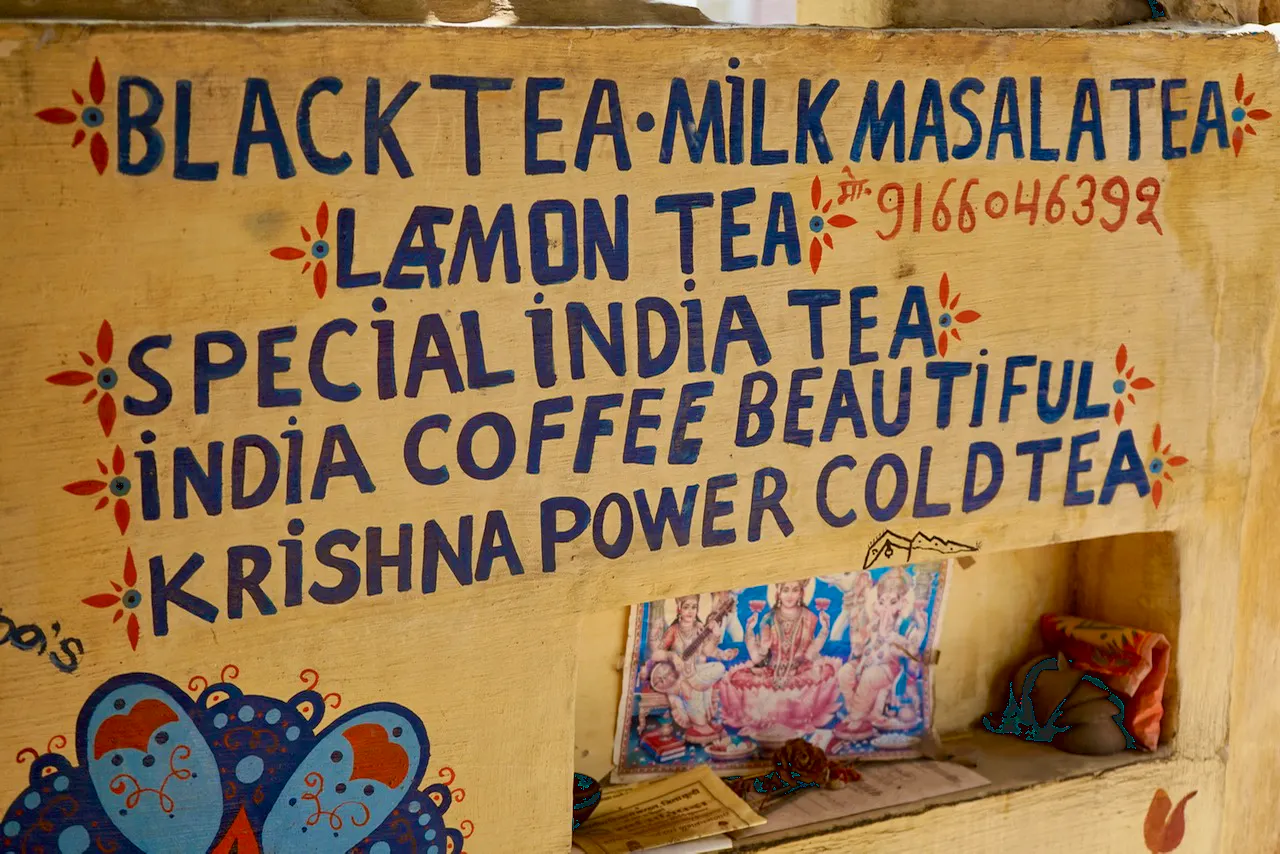 BLACK TEA·MİLK MASALA TEA
LÆMON TEA
मो. 9166046392
SPECİAL İNDİA TEA
İNDİA COFFEE BEAUTİFUL
KRİSHNA POWER COLD TEA